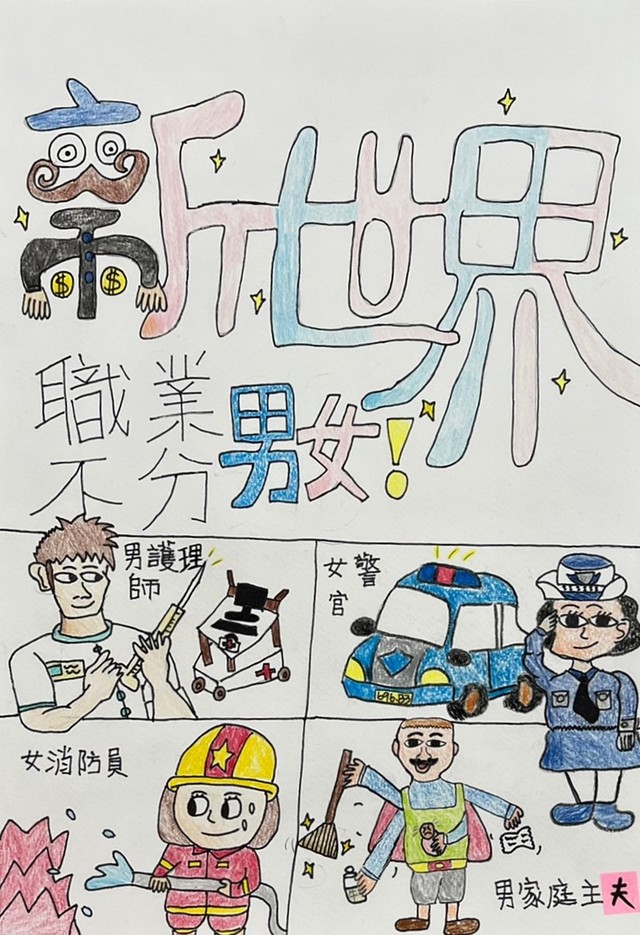 新世界
職業
不分
男女!
男護理
師
女警
官
696-B3
女消防員
男家庭主夫